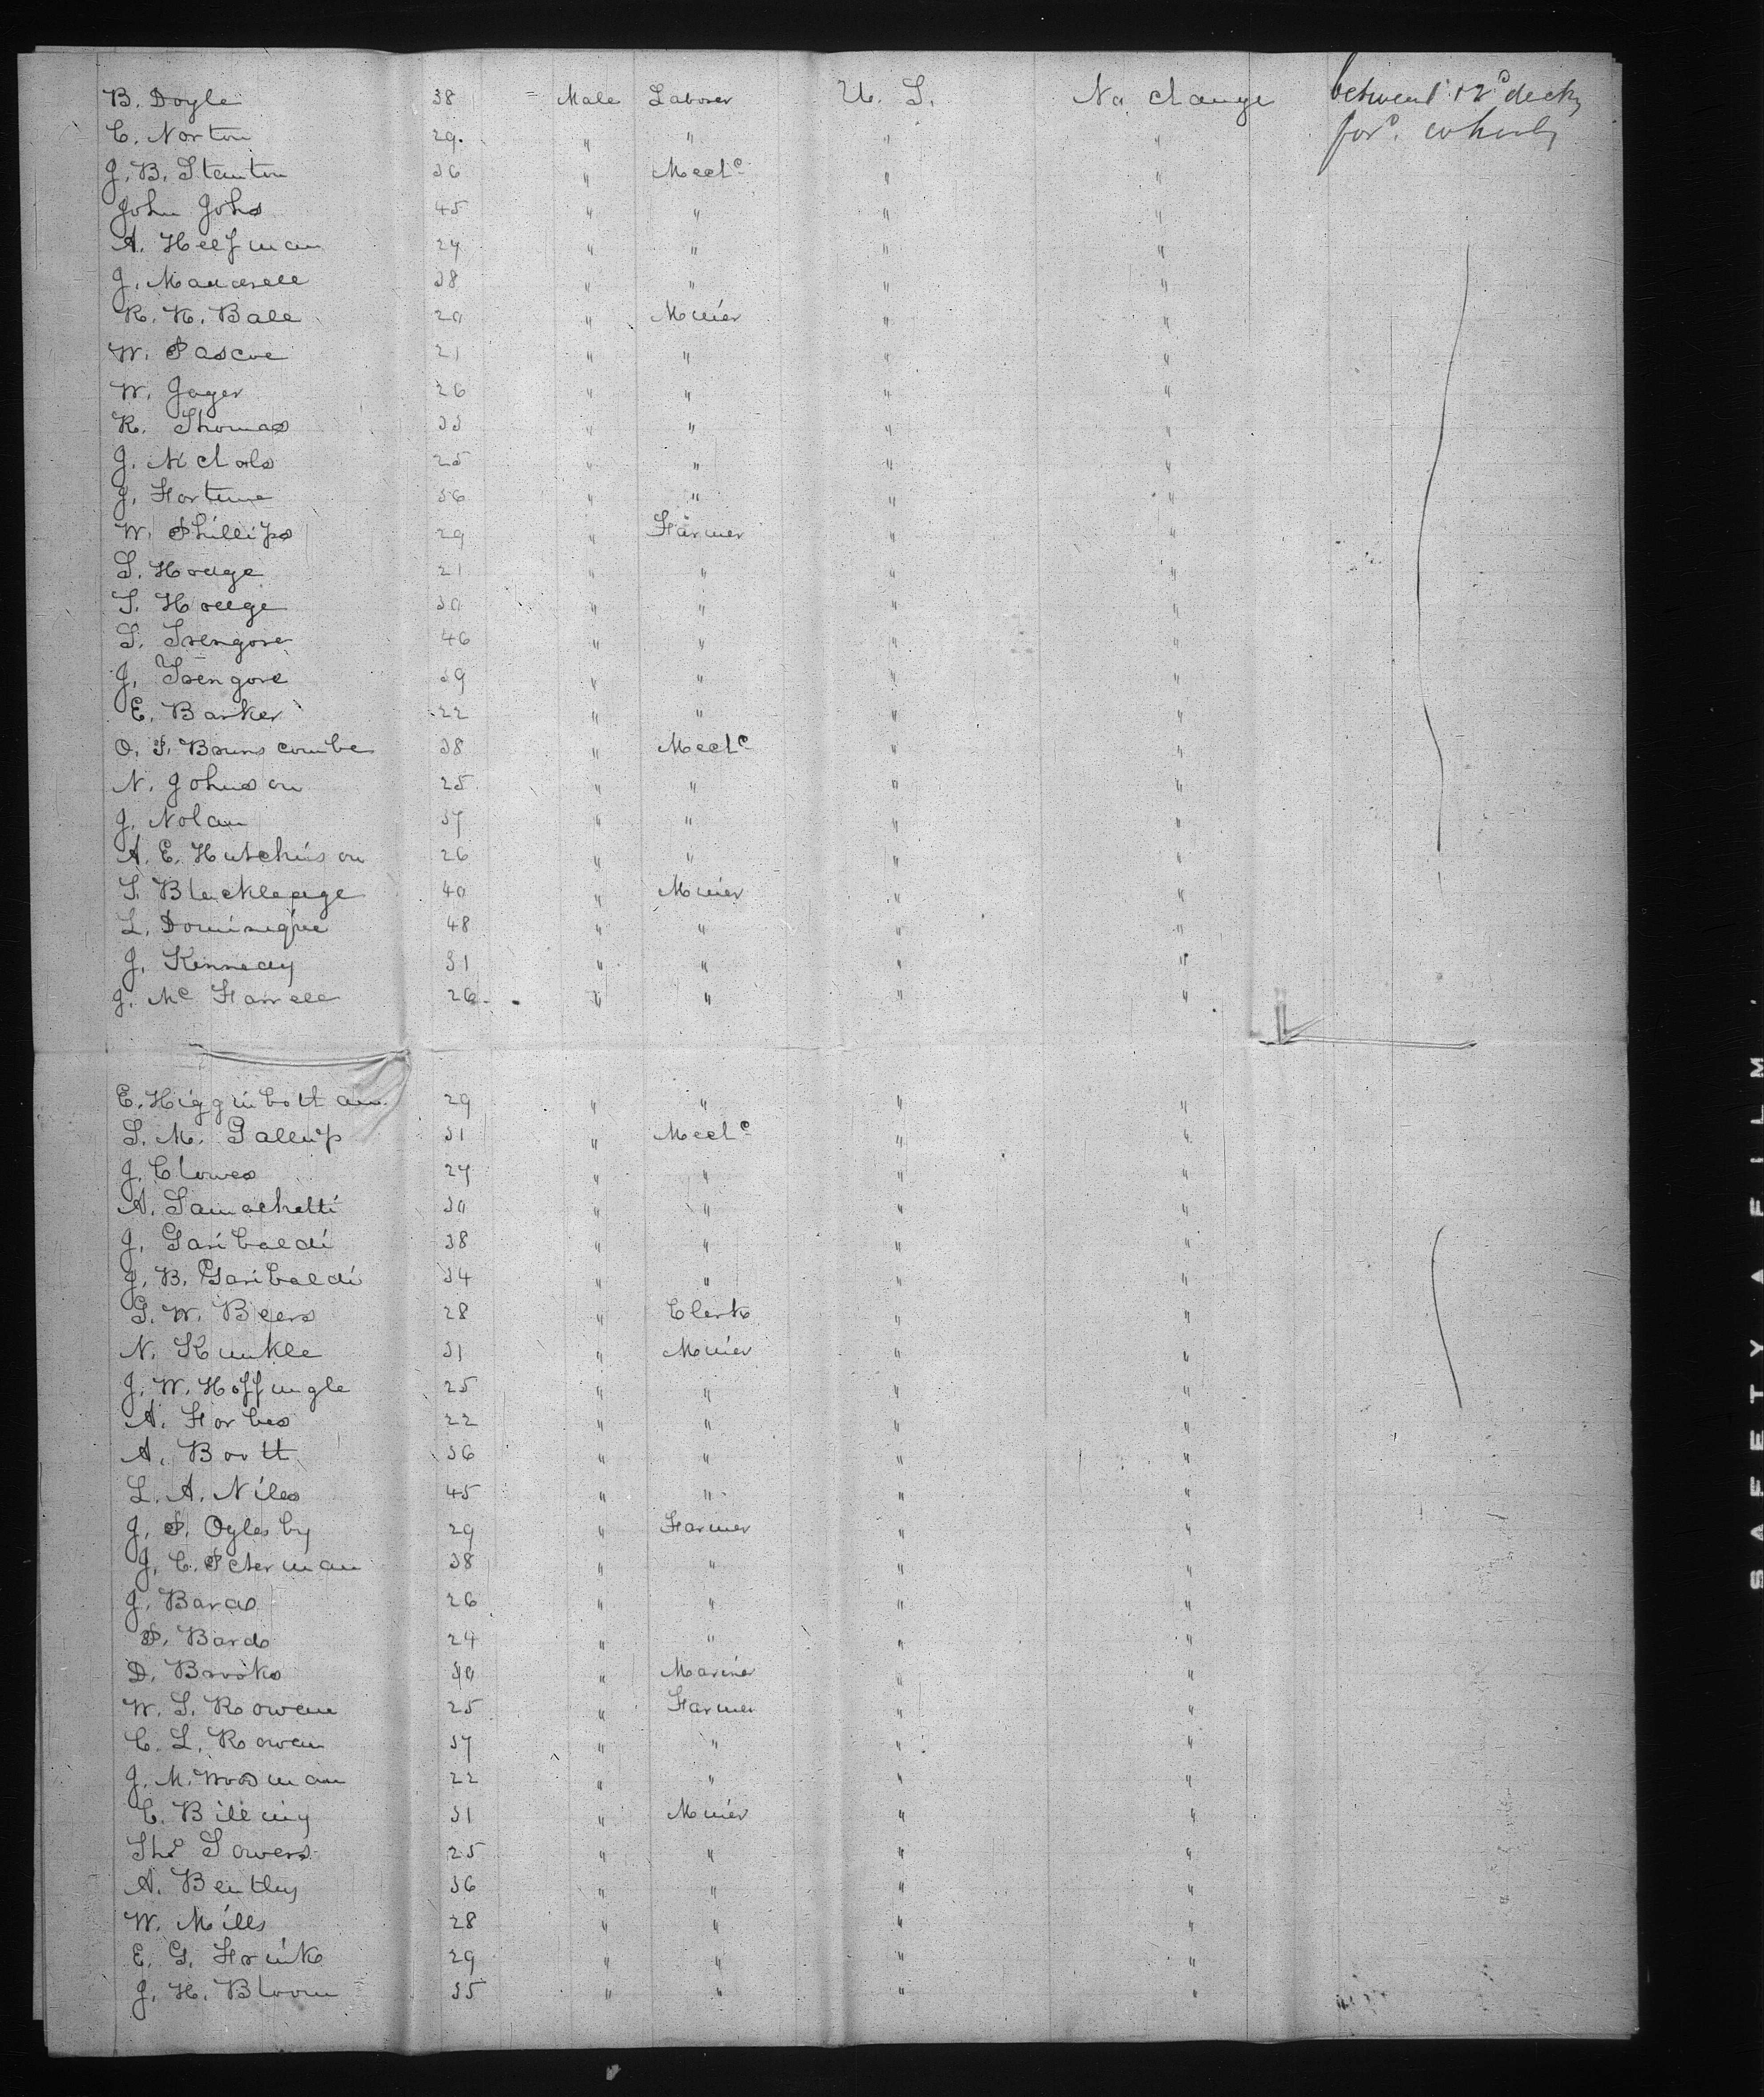 B. Doyle 38 = Male Laborer U. S. No change between decks
C. Norton 29. " " " " for'd
J. B. Stanton 36 " Mechc " "
John Johs 45 " " " "
A. Helfman 27 " " " "
J. Maudsell 38 " " " "
R. K. Ball 20 " Miner " "
W. Pascoe 21 " " " "
W. Jager 26 " " " "
R. Thomas 33 " " " "
J. Nichols 25 " " " "
J. Fortune 36 " " " "
W. Phillips 29 " Farmer " "
S. Hodge 21 " " " "
T. Hodge 30 " " " "
S. Isengore 46 " " " "
J. Isengore 39 " " " "
E. Barker 22 " " " "
O. P. Brunscombe 38 " Mechc " "
N. Johnson 25 " " " "
J. Nolan 37 " " " "
A. E. Hutchinson 26 " " " "
S. Blackledge 40 " Miner " "
L. Dominique 48 " " " "
J. Kennedy 31 " " " "
J. Mc Farrell 26 " " " "
E. Higginbottam 29 " " " "
S. M. Gallup 31 " Mechc " "
J. Clowes 27 " " " "
A. Samochetti 30 " " " "
J. Garibaldi 38 " " " "
J. B. Garibaldi 34 " " " "
G. W. Beers 28 " Clerk " "
N. Kunkle 31 " Miner " "
J. W. Hoffingle 25 " " " "
A. Forbes 22 " " " "
A. Booth 36 " " " "
L. A. Niles 45 " " " "
J. P. Oglesby 29 " Farmer " "
J. C. Peterman 38 " " " "
J. Bards 26 " " " "
P. Bards 24 " " " "
D. Brooks 30 " Mariner " "
W. S. Rowen 25 " Farmer " "
C. L. Rowen 37 " " " "
J. M. Woodman 22 " " " "
C. Billing 31 " Miner " "
Thos Sowers 25 " " " "
A. Bentley 36 " " " "
W. Mills 28 " " " "
E. G. Frink 29 " " " "
J. H. Bloom 35 " " " "
SAFETY A FILM